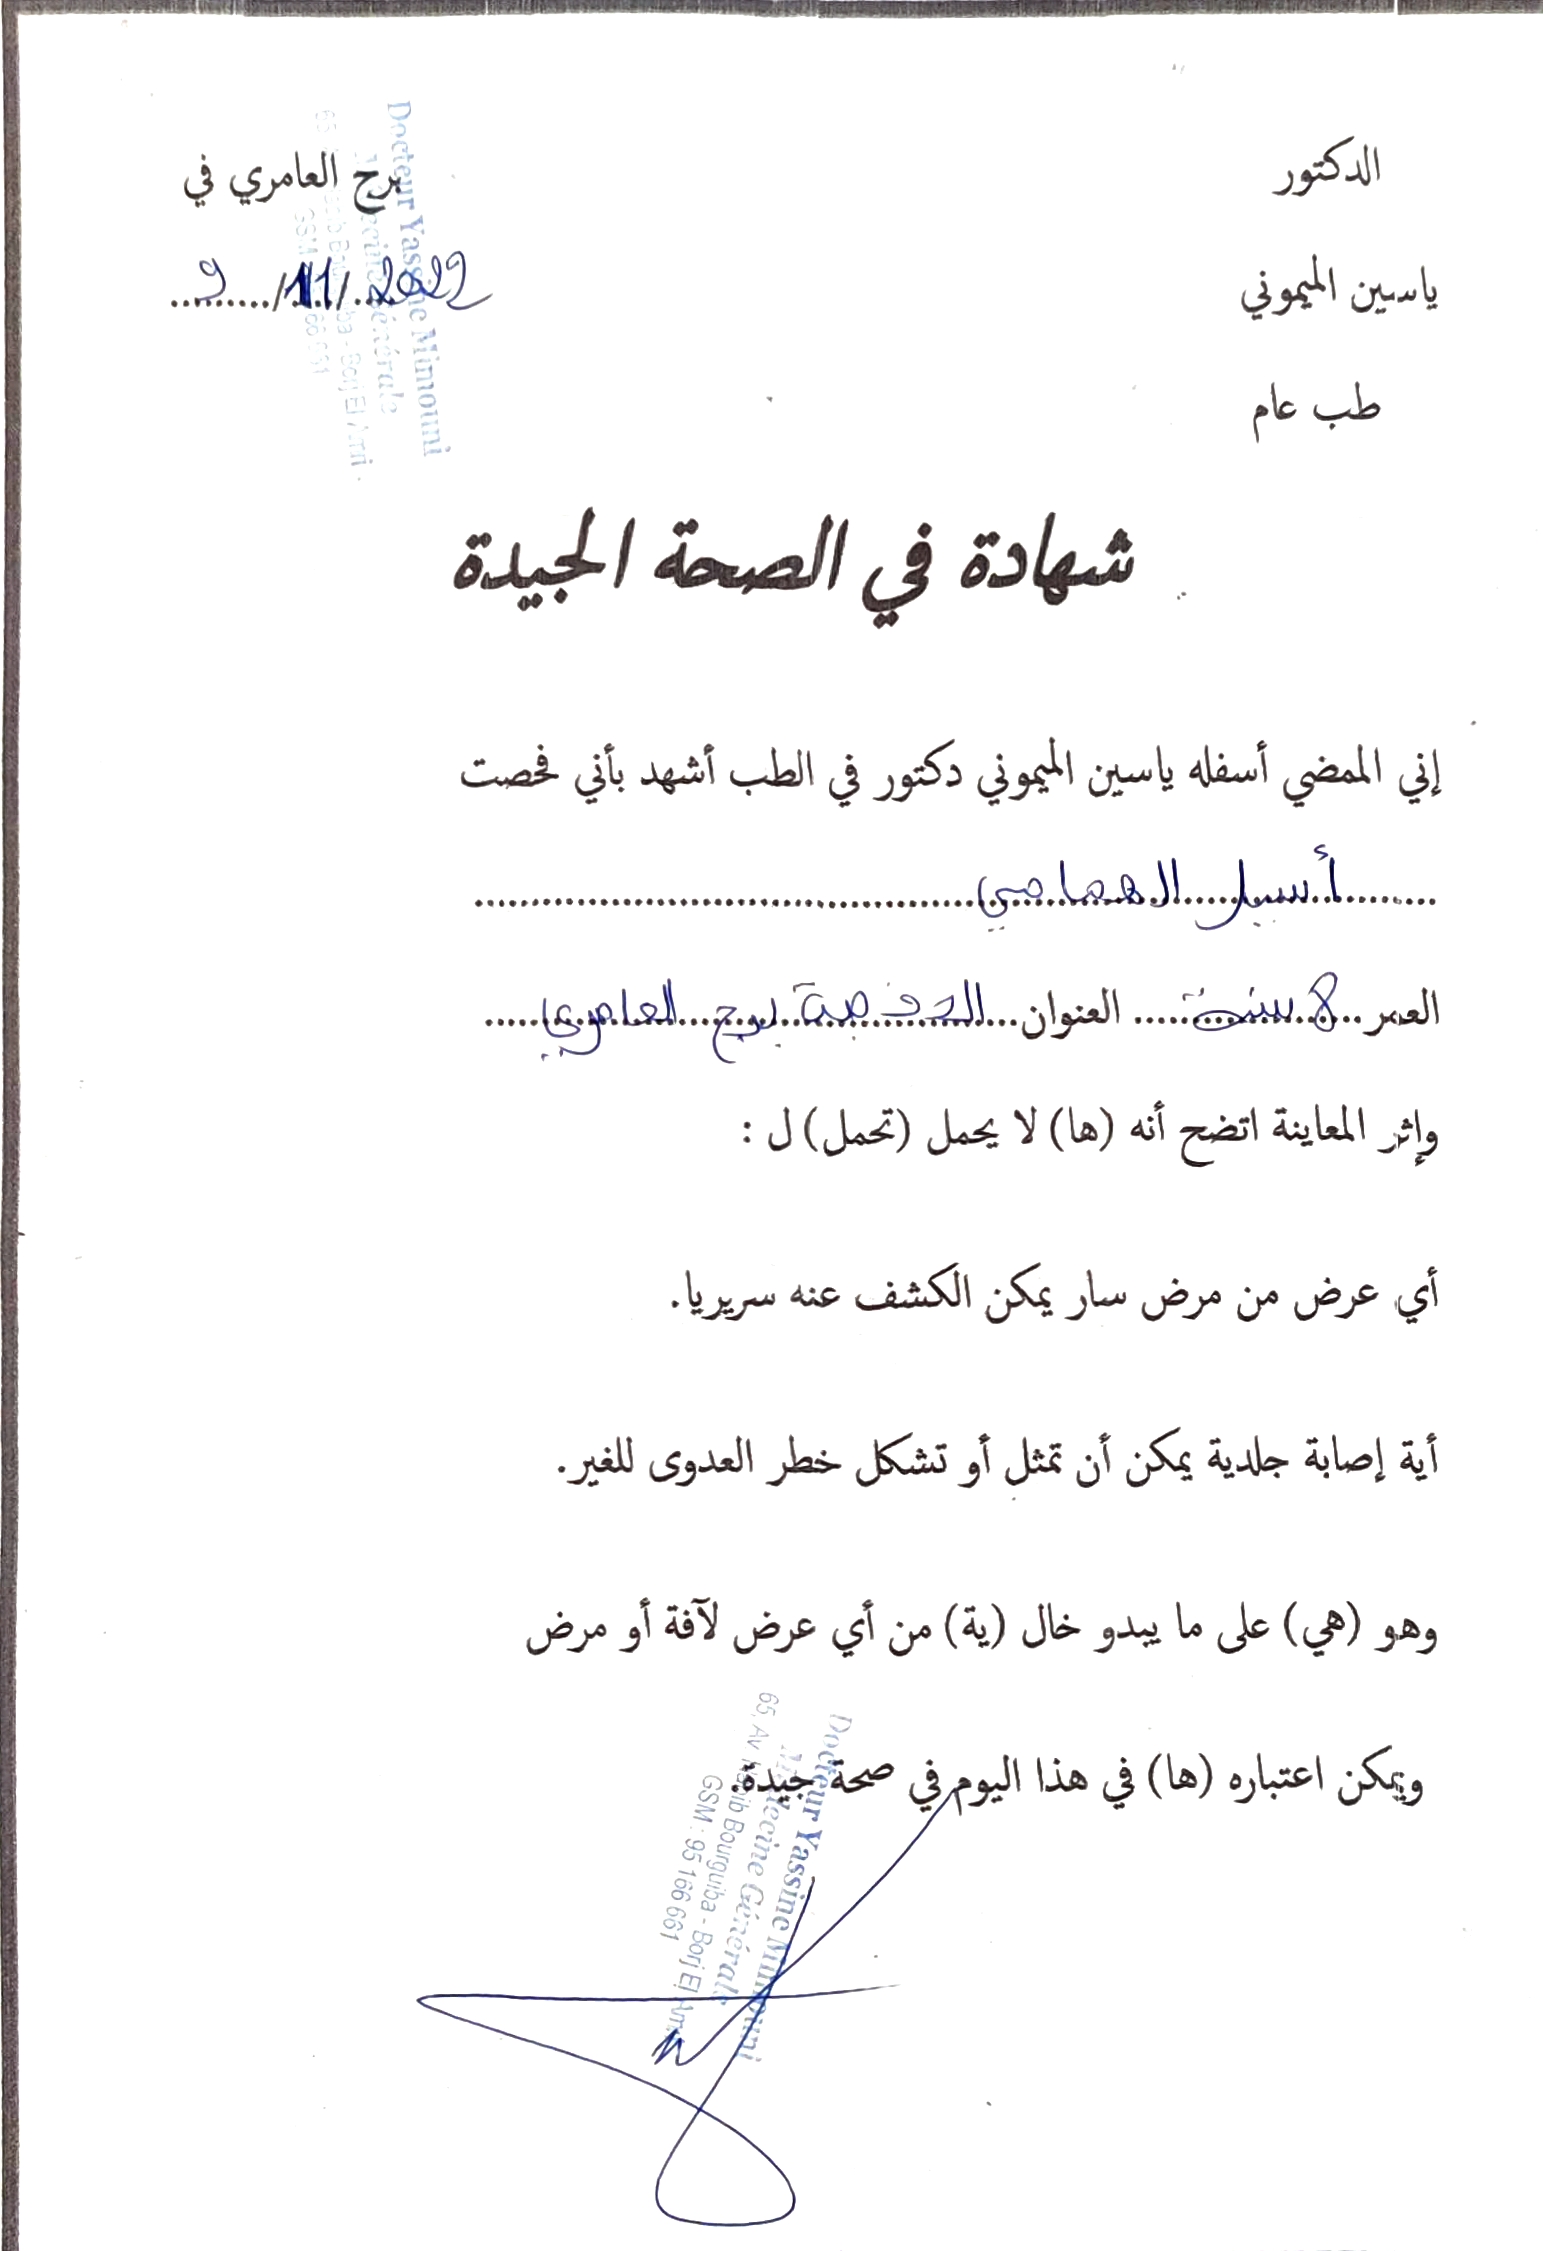 الدكتور
ياسين الميموني
طب عام
برج العامري في
9/11/2022
Docteur Yassine Mimouni
Médecine Générale
65, Av Habib Bourguiba - Borj El Amri
GSM : 95 166 661
شهادة في الصحة الجيدة
إني الممضي أسفله ياسين الميموني دكتور في الطب أشهد بأني فحصت
أسيل الهمامي
العمر 8 سنة العنوان برج العامري
وإثر المعاينة اتضح أنه (ها) لا يحمل (تحمل) ل :
أي عرض من مرض سار يمكن الكشف عنه سريريا.
أية إصابة جلدية يمكن أن تمثل أو تشكل خطر العدوى للغير.
وهو (هي) على ما يبدو خال (ية) من أي عرض لآفة أو مرض
ويمكن اعتباره (ها) في هذا اليوم في صحة جيدة.
Docteur Yassine Mimouni
Médecine Générale
65, Av Habib Bourguiba - Borj El Amri
GSM : 95 166 661